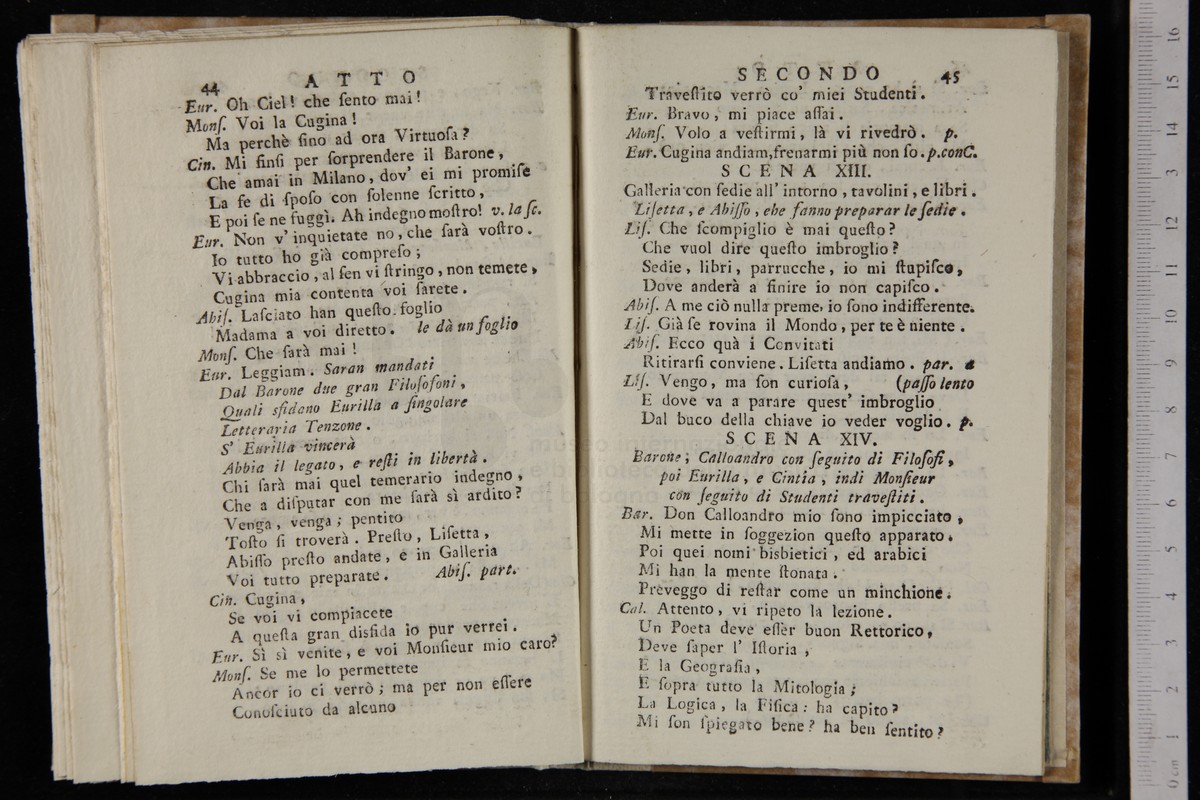 44 ATTO
Eur. Oh Ciel! che ſento mai!
Monſ. Voi la Cugina!
Ma perchè ſino ad ora Virtuoſa?
Cin. Mi finſi per ſorprendere il Barone,
Che amai in Milano, dov' ei mi promiſe
La fe di ſpoſo con ſolenne ſcritto,
E poi ſe ne fuggì. Ah indegno moſtro! v. la ſc.
Eur. Non v' inquietate no, che ſarà voſtro.
Io tutto ho già compreſo;
Vi abbraccio, al ſen vi ſtringo, non temete,
Cugina mia contenta voi ſarete.
Abiſ. Laſciato han queſto foglio
Madama a voi diretto. le dà un foglio
Monſ. Che ſarà mai!
Eur. Leggiam. Saran mandati
Dal Barone due gran Filoſofoni,
Quali sfidano Eurilla a ſingolare
Letteraria Tenzone.
S' Eurilla vincerà
Abbia il legato, e reſti in libertà.
Chi ſarà mai quel temerario indegno,
Che a diſputar con me ſarà sì ardito?
Venga, venga; pentito
Toſto ſi troverà. Preſto, Liſetta,
Abiſſo preſto andate, e in Galleria
Voi tutto preparate. Abiſ. part.
Cin. Cugina,
Se voi vi compiacete
A queſta gran disfida io pur verrei.
Eur. Sì sì venite, e voi Monſieur mio caro?
Monſ. Se me lo permettete
Ancor io ci verrò; ma per non eſſere
Conoſciuto da alcuno
SECONDO 45
Traveſtito verrò co' miei Studenti.
Eur. Bravo, mi piace aſſai.
Monſ. Volo a veſtirmi, là vi rivedrò. p.
Eur. Cugina andiam, frenarmi più non ſo. p. con C.
SCENA XIII.
Galleria con ſedie all' intorno, tavolini, e libri.
Liſetta, e Abiſſo, che fanno preparar le ſedie.
Liſ. Che ſcompiglio è mai queſto?
Che vuol dire queſto imbroglio?
Sedie, libri, parrucche, io mi ſtupiſco,
Dove anderà a finire io non capiſco.
Abiſ. A me ciò nulla preme, io ſono indifferente.
Liſ. Già ſe rovina il Mondo, per te è niente.
Abiſ. Ecco quà i Convitati
Ritirarſi conviene. Liſetta andiamo. par. a
Liſ. Vengo, ma ſon curioſa, (paſſo lento
E dove va a parare queſt' imbroglio
Dal buco della chiave io veder voglio. p.
SCENA XIV.
Barone, Calloandro con ſeguito di Filoſofi,
poi Eurilla, e Cintia, indi Monſieur
con ſeguito di Studenti traveſtiti.
Bar. Don Calloandro mio ſono impicciato,
Mi mette in ſoggezion queſto apparato.
Poi quei nomi bisbietici, ed arabici
Mi han la mente ſtonata.
Preveggo di reſtar come un minchione.
Cal. Attento, vi ripeto la lezione.
Un Poeta deve eſſer buon Rettorico,
Deve ſaper l' Iſtoria,
E la Geografia,
E ſopra tutto la Mitologia;
La Logica, la Fiſica: ha capito?
Mi ſon ſpiegato bene? ha ben ſentito?
museo interna
e bibliotec
di bologna
0 cm 1 2 3 4 5 6 7 8 9 10 11 12 13 14 15 16